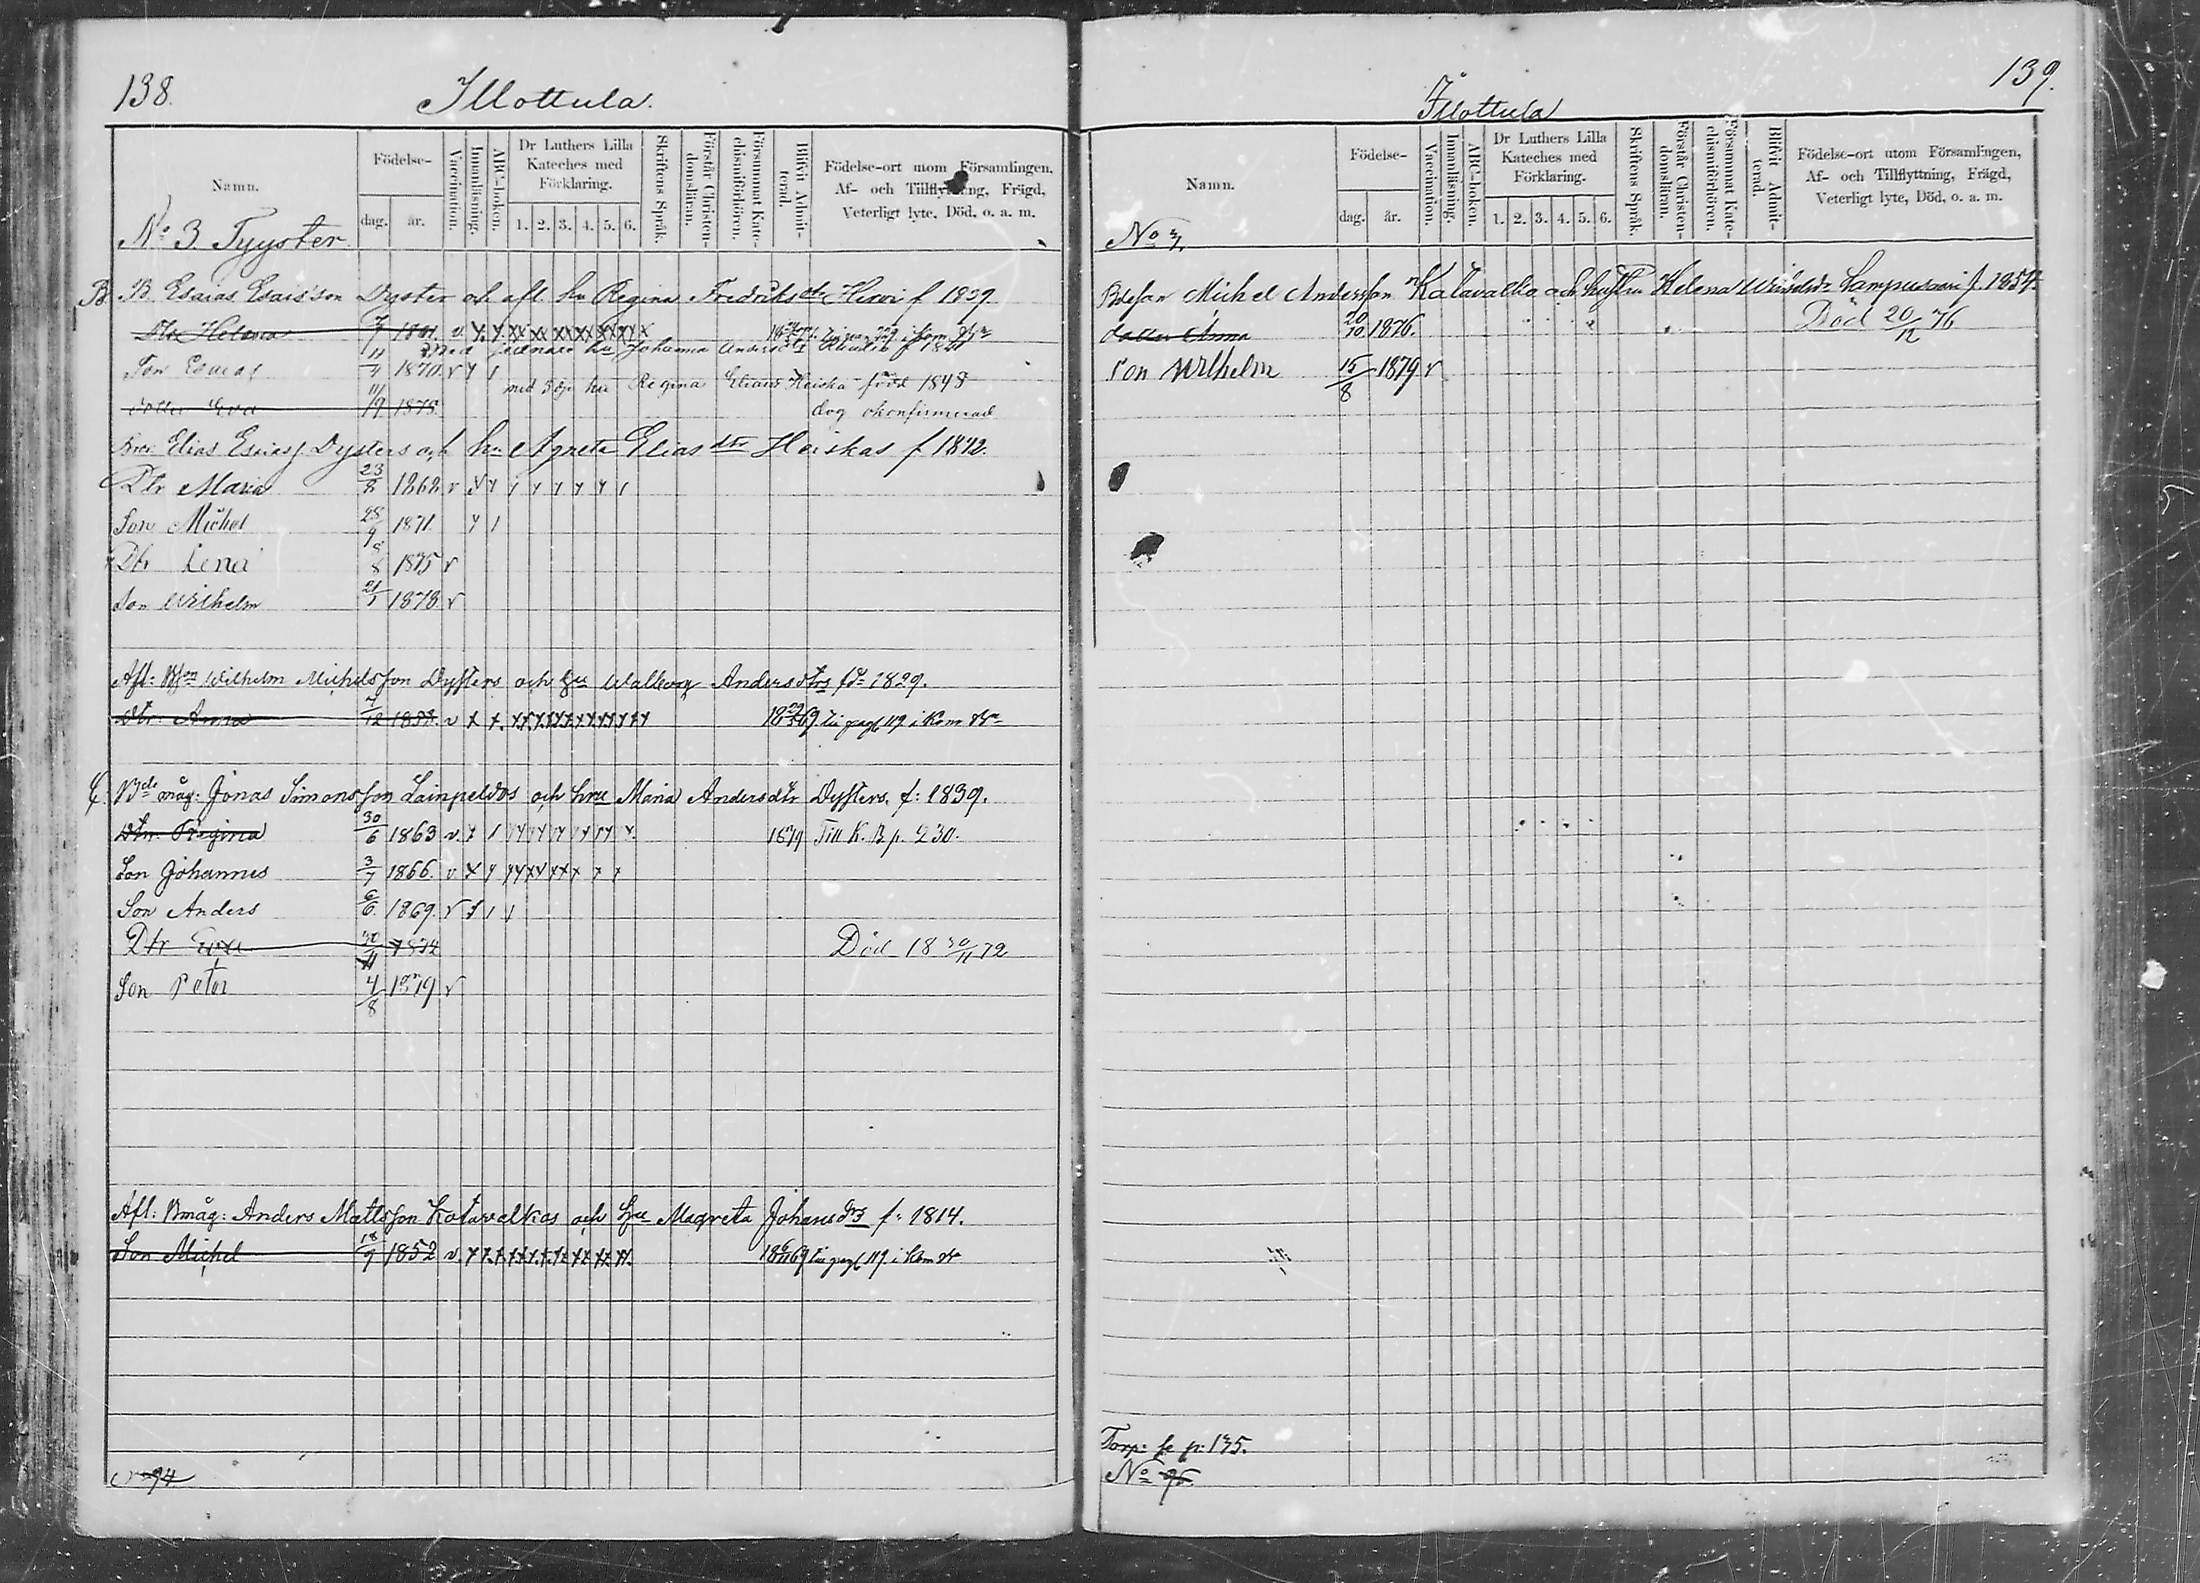 138.
Illottula.
Namn.
Födelse-
dag.
år.
Vaccination.
Innanläsning.
ABC-boken.
Dr Luthers Lilla
Kateches med
Förklaring.
1. 2. 3. 4. 5. 6.
Skriftens Språk.
Förstår Christen-
domsläran.
Försummat Kate-
chismiförhören.
Blifvit Admit-
terad.
Födelse-ort utom Församlingen,
Af- och Tillflyttning, Frägd,
Veterligt lyte, Död, o. a. m.
No 3 Tyyster
B B. Esaias Esais'son Dyster och afl. hu Regina Fredriksdr Hirvi f 1839.
Dtr Helena
med hu Johanna Andersdtr f 18
Son Esaias 11/4 1870. v
med 3dje hu Regina Eliasd Heiska född 1848
Dotter Eva 1878. dog okonfirmerad
Bror Elias Esaias Dysters och hu Agneta Elias dtr Heiskas f 1842.
Dtr Maria 23/2 1868 v
Son Michel 28/9 1871.
Dtr Lena 8/8 1875 v
Son Wilhelm 21/1 1878 v
Afl: Bson Wilhelm Michelsson Dysters och hu Walborg Andersdtrs fd: 1829.
Dtr. Anna 4/12 1853. v 18 69. till pag 119 i Kom.
C. Bds måg: Jonas Simonsson Lainpeldos och hru Maria Andersdtr Dysters. f: 1839.
Dtr. Regina 30/6 1863 v. 1879 Till K. B p. 230.
Son Johannes 3/7 1866. v.
Son Anders 6/6. 1869. v
Dtr Eva 30/11 Död 18 30/11 72
Son Peter 4/8 1879 v
Afl: Bmåg: Anders Mattsson Katavalkas och hu Magreta Johansdrs f: 1814.
Son Michel 18/9 1852 v. 18 69 till pag 119. i Kom
No 94
139.
Illottula
Namn.
Födelse-
dag.
år.
Vaccination.
Innanläsning.
ABC-boken.
Dr Luthers Lilla
Kateches med
Förklaring.
1. 2. 3. 4. 5. 6.
Skriftens Språk.
Förstår Christen-
domsläran.
Försummat Kate-
chismiförhören.
Blifvit Admit-
terad.
Födelse-ort utom Församlingen,
Af- och Tillflyttning, Frägd,
Veterligt lyte, Död, o. a. m.
No 3/4.
Michel Andersson Katavalko och hustru Helena Lampusaari f. 1854.
dotter Anna 20/10 1876. Död 20/12 76
Son Wilhelm 15/8 1879 v
Torp: se p: 135.
No 95